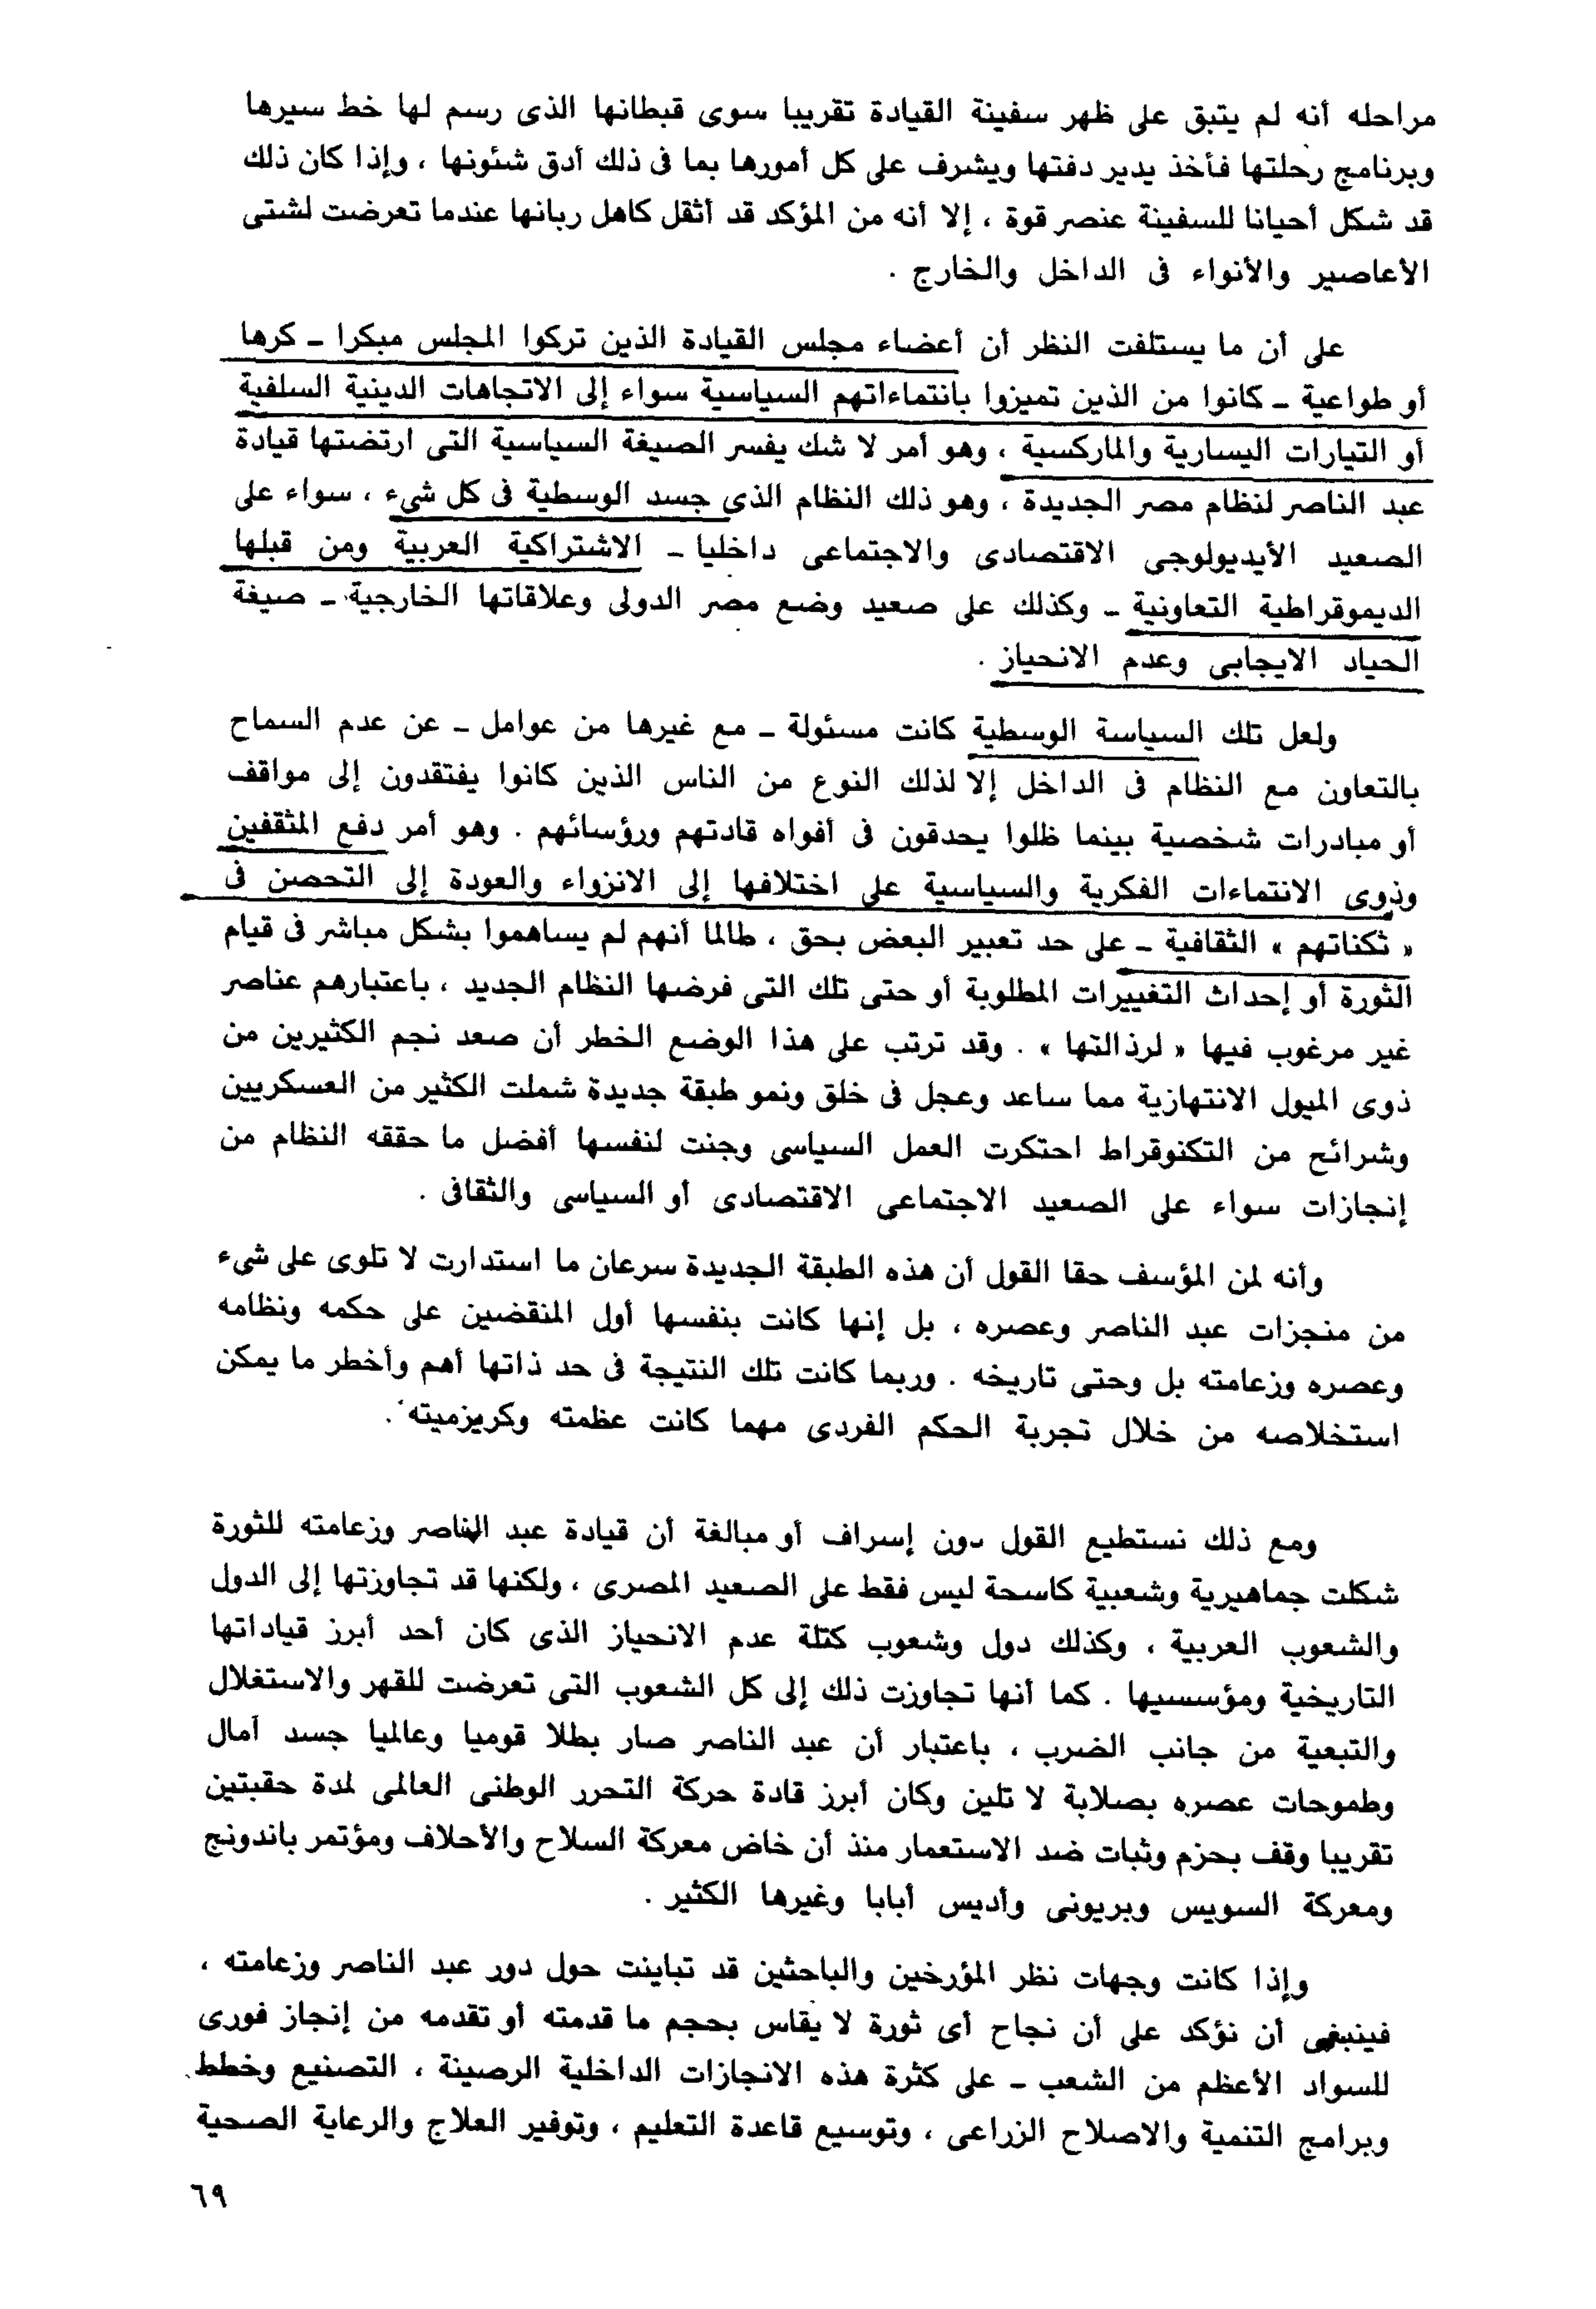 مراحله أنه لم يتبق على ظهر سفينة القيادة تقريبا سوى قبطانها الذى رسم لها خط سيرها
وبرنامج رحلتها فأخذ يدير دفتها ويشرف على كل أمورها بما فى ذلك أدق شئونها ، وإذا كان ذلك
قد شكل أحيانا للسفينة عنصر قوة ، إلا أنه من المؤكد قد أثقل كاهل ربانها عندما تعرضت لشتى
الأعاصير والأنواء فى الداخل والخارج .
على أن ما يستلفت النظر أن أعضاء مجلس القيادة الذين تركوا المجلس مبكرا ــ كرها
أو طواعية ــ كانوا من الذين تميزوا بانتماءاتهم السياسية سواء إلى الاتجاهات الدينية السلفية
أو التيارات اليسارية والماركسية ، وهو أمر لا شك يفسر الصيغة السياسية التى ارتضتها قيادة
عبد الناصر لنظام مصر الجديدة ، وهو ذلك النظام الذى جسد الوسطية فى كل شىء ، سواء على
الصعيد الأيديولوجى الاقتصادى والاجتماعى داخليا ــ الاشتراكية العربية ومن قبلها
الديموقراطية التعاونية ــ وكذلك على صعيد وضع مصر الدولى وعلاقاتها الخارجية ــ صيغة
الحياد الايجابى وعدم الانحياز .
ولعل تلك السياسة الوسطية كانت مسئولة ــ مع غيرها من عوامل ــ عن عدم السماح
بالتعاون مع النظام فى الداخل إلا لذلك النوع من الناس الذين كانوا يفتقدون إلى مواقف
أو مبادرات شخصية بينما ظلوا يحدقون فى أفواه قادتهم ورؤسائهم . وهو أمر دفع المثقفين
وذوى الانتماءات الفكرية والسياسية على اختلافها إلى الانزواء والعودة إلى التحصن فى
« ثكناتهم » الثقافية ــ على حد تعبير البعض بحق ، طالما أنهم لم يساهموا بشكل مباشر فى قيام
الثورة أو إحداث التغييرات المطلوبة أو حتى تلك التى فرضها النظام الجديد ، باعتبارهم عناصر
غير مرغوب فيها « لرذالتها » . وقد ترتب على هذا الوضع الخطر أن صعد نجم الكثيرين من
ذوى الميول الانتهازية مما ساعد وعجل فى خلق ونمو طبقة جديدة شملت الكثير من العسكريين
وشرائح من التكنوقراط احتكرت العمل السياسى وجنت لنفسها أفضل ما حققه النظام من
إنجازات سواء على الصعيد الاجتماعى الاقتصادى أو السياسى والثقافى .
وأنه لمن المؤسف حقا القول أن هذه الطبقة الجديدة سرعان ما استدارت لا تلوى على شىء
من منجزات عبد الناصر وعصره ، بل إنها كانت بنفسها أول المنقضين على حكمه ونظامه
وعصره وزعامته بل وحتى تاريخه . وربما كانت تلك النتيجة فى حد ذاتها أهم وأخطر ما يمكن
استخلاصه من خلال تجربة الحكم الفردى مهما كانت عظمته وكريزميته .
ومع ذلك نستطيع القول دون إسراف أو مبالغة أن قيادة عبد الناصر وزعامته للثورة
شكلت جماهيرية وشعبية كاسحة ليس فقط على الصعيد المصرى ، ولكنها قد تجاوزتها إلى الدول
والشعوب العربية ، وكذلك دول وشعوب كتلة عدم الانحياز الذى كان أحد أبرز قياداتها
التاريخية ومؤسسيها . كما أنها تجاوزت ذلك إلى كل الشعوب التى تعرضت للقهر والاستغلال
والتبعية من جانب الضرب ، باعتبار أن عبد الناصر صار بطلا قوميا وعالميا جسد آمال
وطموحات عصره بصلابة لا تلين وكان أبرز قادة حركة التحرر الوطنى العالمى لمدة حقبتين
تقريبا وقف بحزم وثبات ضد الاستعمار منذ أن خاض معركة السلاح والأحلاف ومؤتمر باندونج
ومعركة السويس وبريونى وأديس أبابا وغيرها الكثير .
وإذا كانت وجهات نظر المؤرخين والباحثين قد تباينت حول دور عبد الناصر وزعامته ،
فينبغى أن نؤكد على أن نجاح أى ثورة لا يقاس بحجم ما قدمته أو تقدمه من إنجاز فورى
للسواد الأعظم من الشعب ــ على كثرة هذه الانجازات الداخلية الرصينة ، التصنيع وخطط
وبرامج التنمية والاصلاح الزراعى ، وتوسيع قاعدة التعليم ، وتوفير العلاج والرعاية الصحية
٦٩